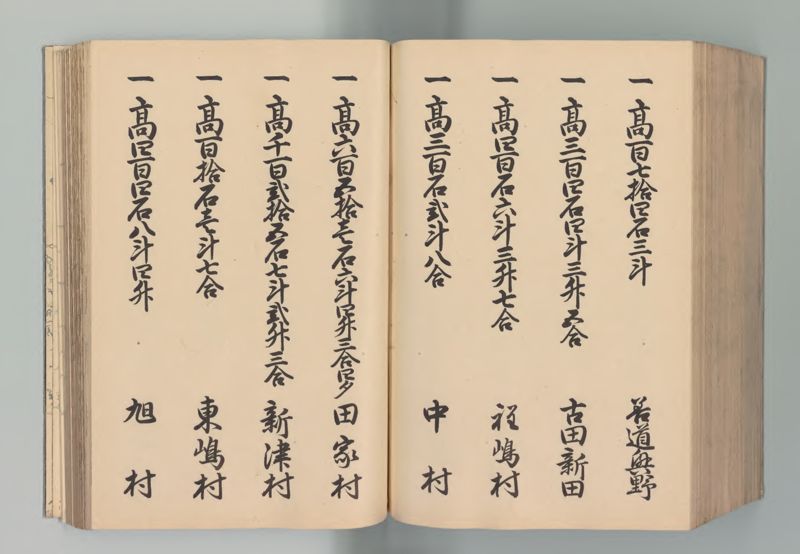 一高百七拾四石三斗 若道興野
一高三百四石四斗三升五合 古田新田
一高四百石六斗三升七合 程嶋村
一高三百石弐斗八合 中村
一高六百五拾壱石六斗四升三合四夕 田家村
一高千百弐拾五石七斗弐升三合 新津村
一高百拾石壱斗七合 東嶋村
一高四百四石八斗四升 旭村